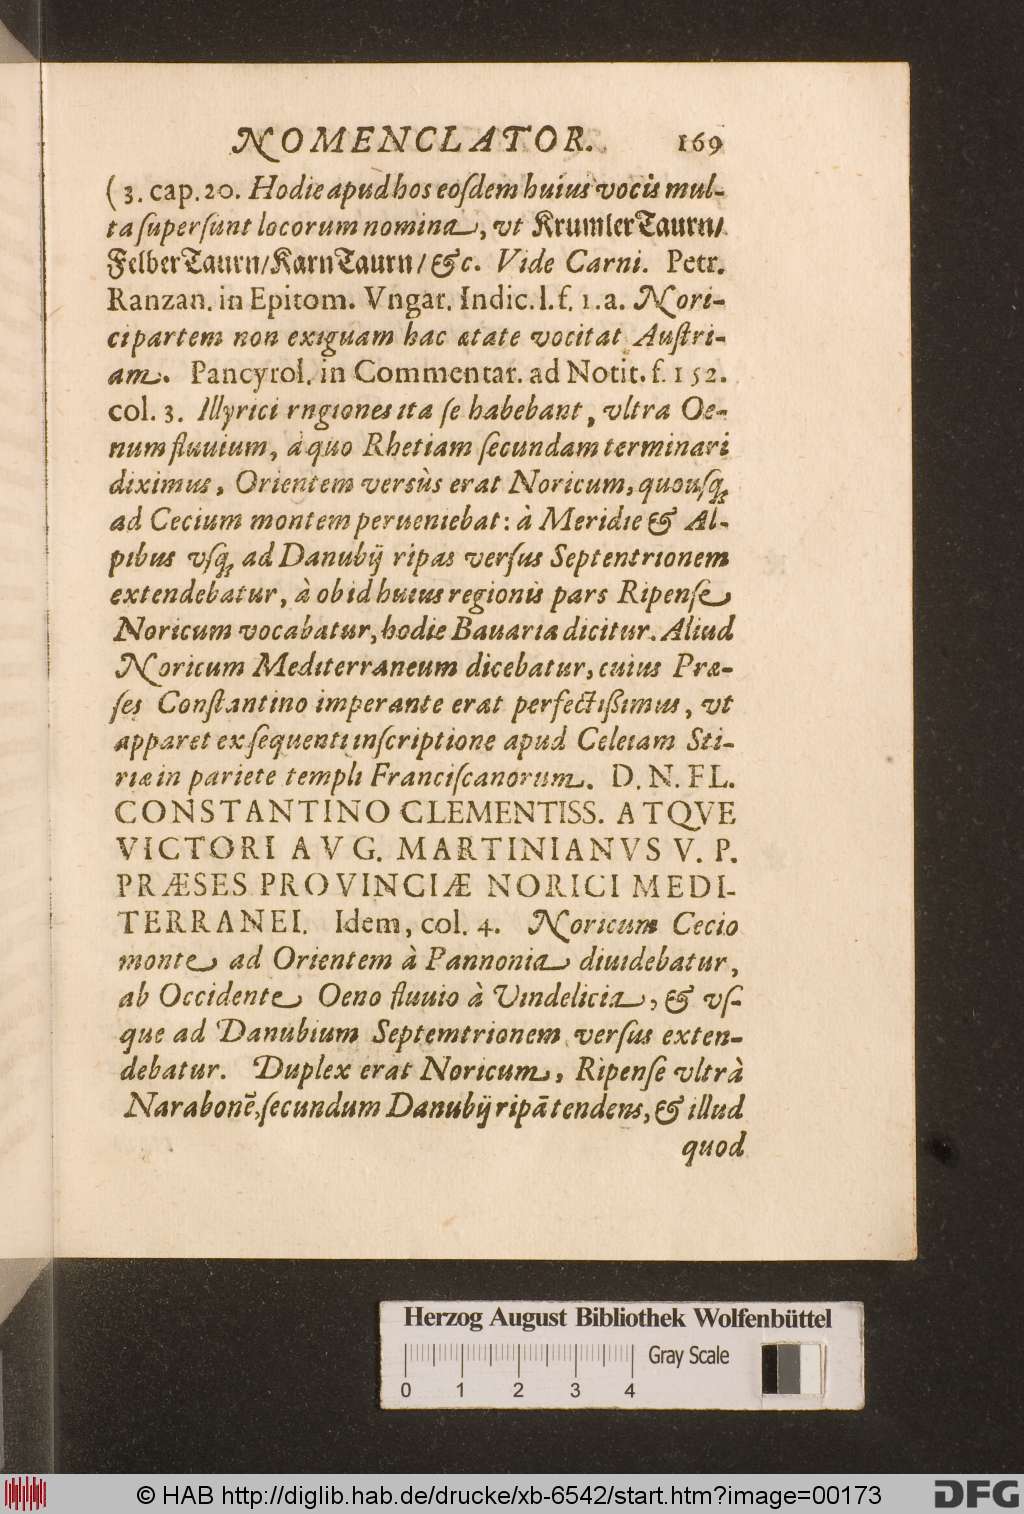 NOMENCLATOR. 169
(3. cap. 20. Hodie apud hos eoſdem huius vocis mul-
ta ſuperſunt locorum nomina, vt KrumlerTaurn/
FelberTaurn/KarnTaurn/&c. Vide Carni. Petr.
Ranzan. in Epitom. Vngar. Indic. l. f. 1. a. Nori-
ci partem non exiguam hac ætate vocitat Auſtri-
am. Pancyrol. in Commentar. ad Notit. f. 152.
col. 3. Illyrici rngiones ita ſe habebant, vltra Oe-
num fluuium, à quo Rhetiam ſecundam terminari
diximus, Orientem versùs erat Noricum, quouſq;
ad Cecium montem perueniebat: à Meridie & Al-
pibus vſq; ad Danubij ripas verſus Septentrionem
extendebatur, à ob id huius regionis pars Ripenſe
Noricum vocabatur, hodie Bauaria dicitur. Aliud
Noricum Mediterraneum dicebatur, cuius Præ-
ſes Conſtantino imperante erat perfectißimus, vt
apparet ex ſequenti inſcriptione apud Celeiam Sti-
riæ in pariete templi Franciſcanorum. D. N. FL.
CONSTANTINO CLEMENTISS. ATQVE
VICTORI AVG. MARTINIANVS V. P.
PRÆSES PROVINCIÆ NORICI MEDI-
TERRANEI. Idem, col. 4. Noricum Cecio
monte ad Orientem à Pannonia diuidebatur,
ab Occidente Oeno fluuio à Vindelicia, & vſ-
que ad Danubium Septemtrionem verſus exten-
debatur. Duplex erat Noricum, Ripenſe vltrà
Narabonē, ſecundum Danubij ripā tendens, & illud
quod
Herzog August Bibliothek Wolfenbüttel
Gray Scale
0 1 2 3 4
© HAB http://diglib.hab.de/drucke/xb-6542/start.htm?image=00173
DFG